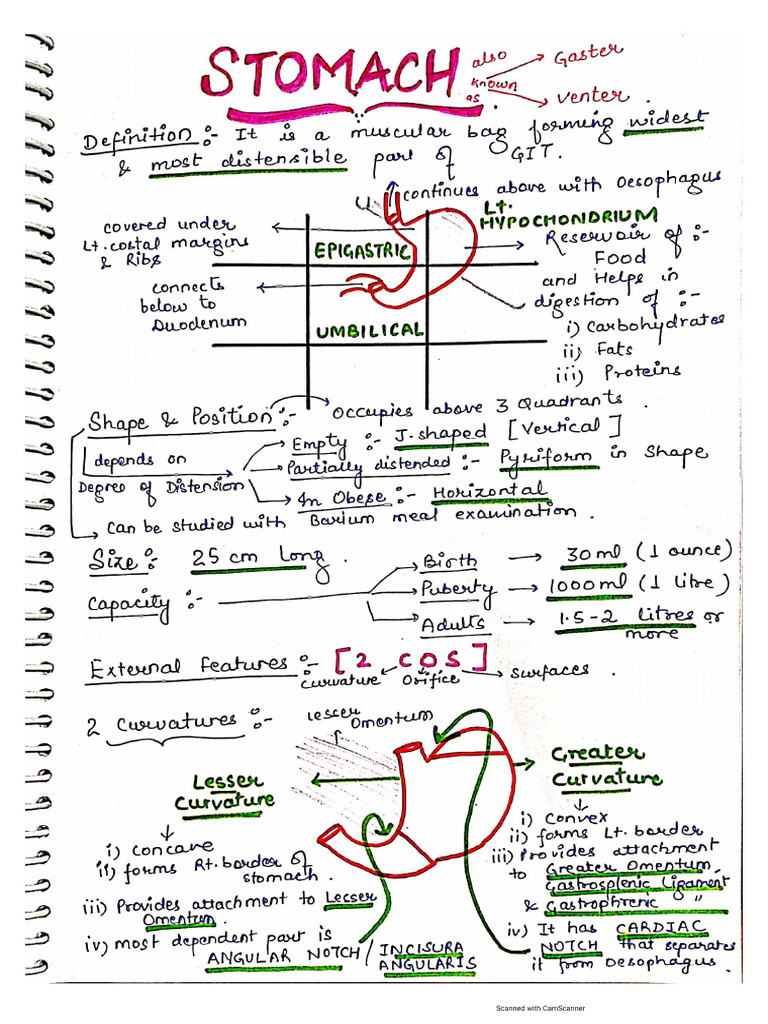 STOMACH also known as Gaster
Venter
Definition :- It is a muscular bag forming widest
& most distensible part of GIT.
continues above with Oesophagus
Lt. HYPOCHONDRIUM
covered under
Lt. costal margins
& Ribs
EPIGASTRIC
Reservoir of :-
Food
and Helps in
digestion of :-
i) Carbohydrates
ii) Fats
iii) Proteins
connects
below to
Duodenum
UMBILICAL
Shape & Position :- Occupies above 3 Quadrants.
depends on
Degree of Distension
Empty :- J-shaped [Vertical]
Partially distended :- Pyriform in Shape
In Obese :- Horizontal
Can be studied with Barium meal examination.
Size :- 25 cm Long.
Capacity :-
Birth → 30 ml (1 ounce)
Puberty → 1000 ml (1 litre)
Adults → 1.5-2 litres or
more
External features :- [2 COS]
Curvature Orifice surfaces.
2 Curvatures :-
lesser
Omentum
Lesser
Curvature
i) concave
ii) forms Rt. border of
stomach.
iii) Provides attachment to Lesser
Omentum.
iv) most dependent part is
ANGULAR NOTCH / INCISURA
ANGULARIS
Greater
Curvature
i) Convex
ii) forms Lt. border
iii) Provides attachment
to Greater Omentum,
Gastrosplenic Ligament
& Gastrophrenic "
iv) It has CARDIAC
NOTCH that separates
it from Oesophagus.
Scanned with CamScanner